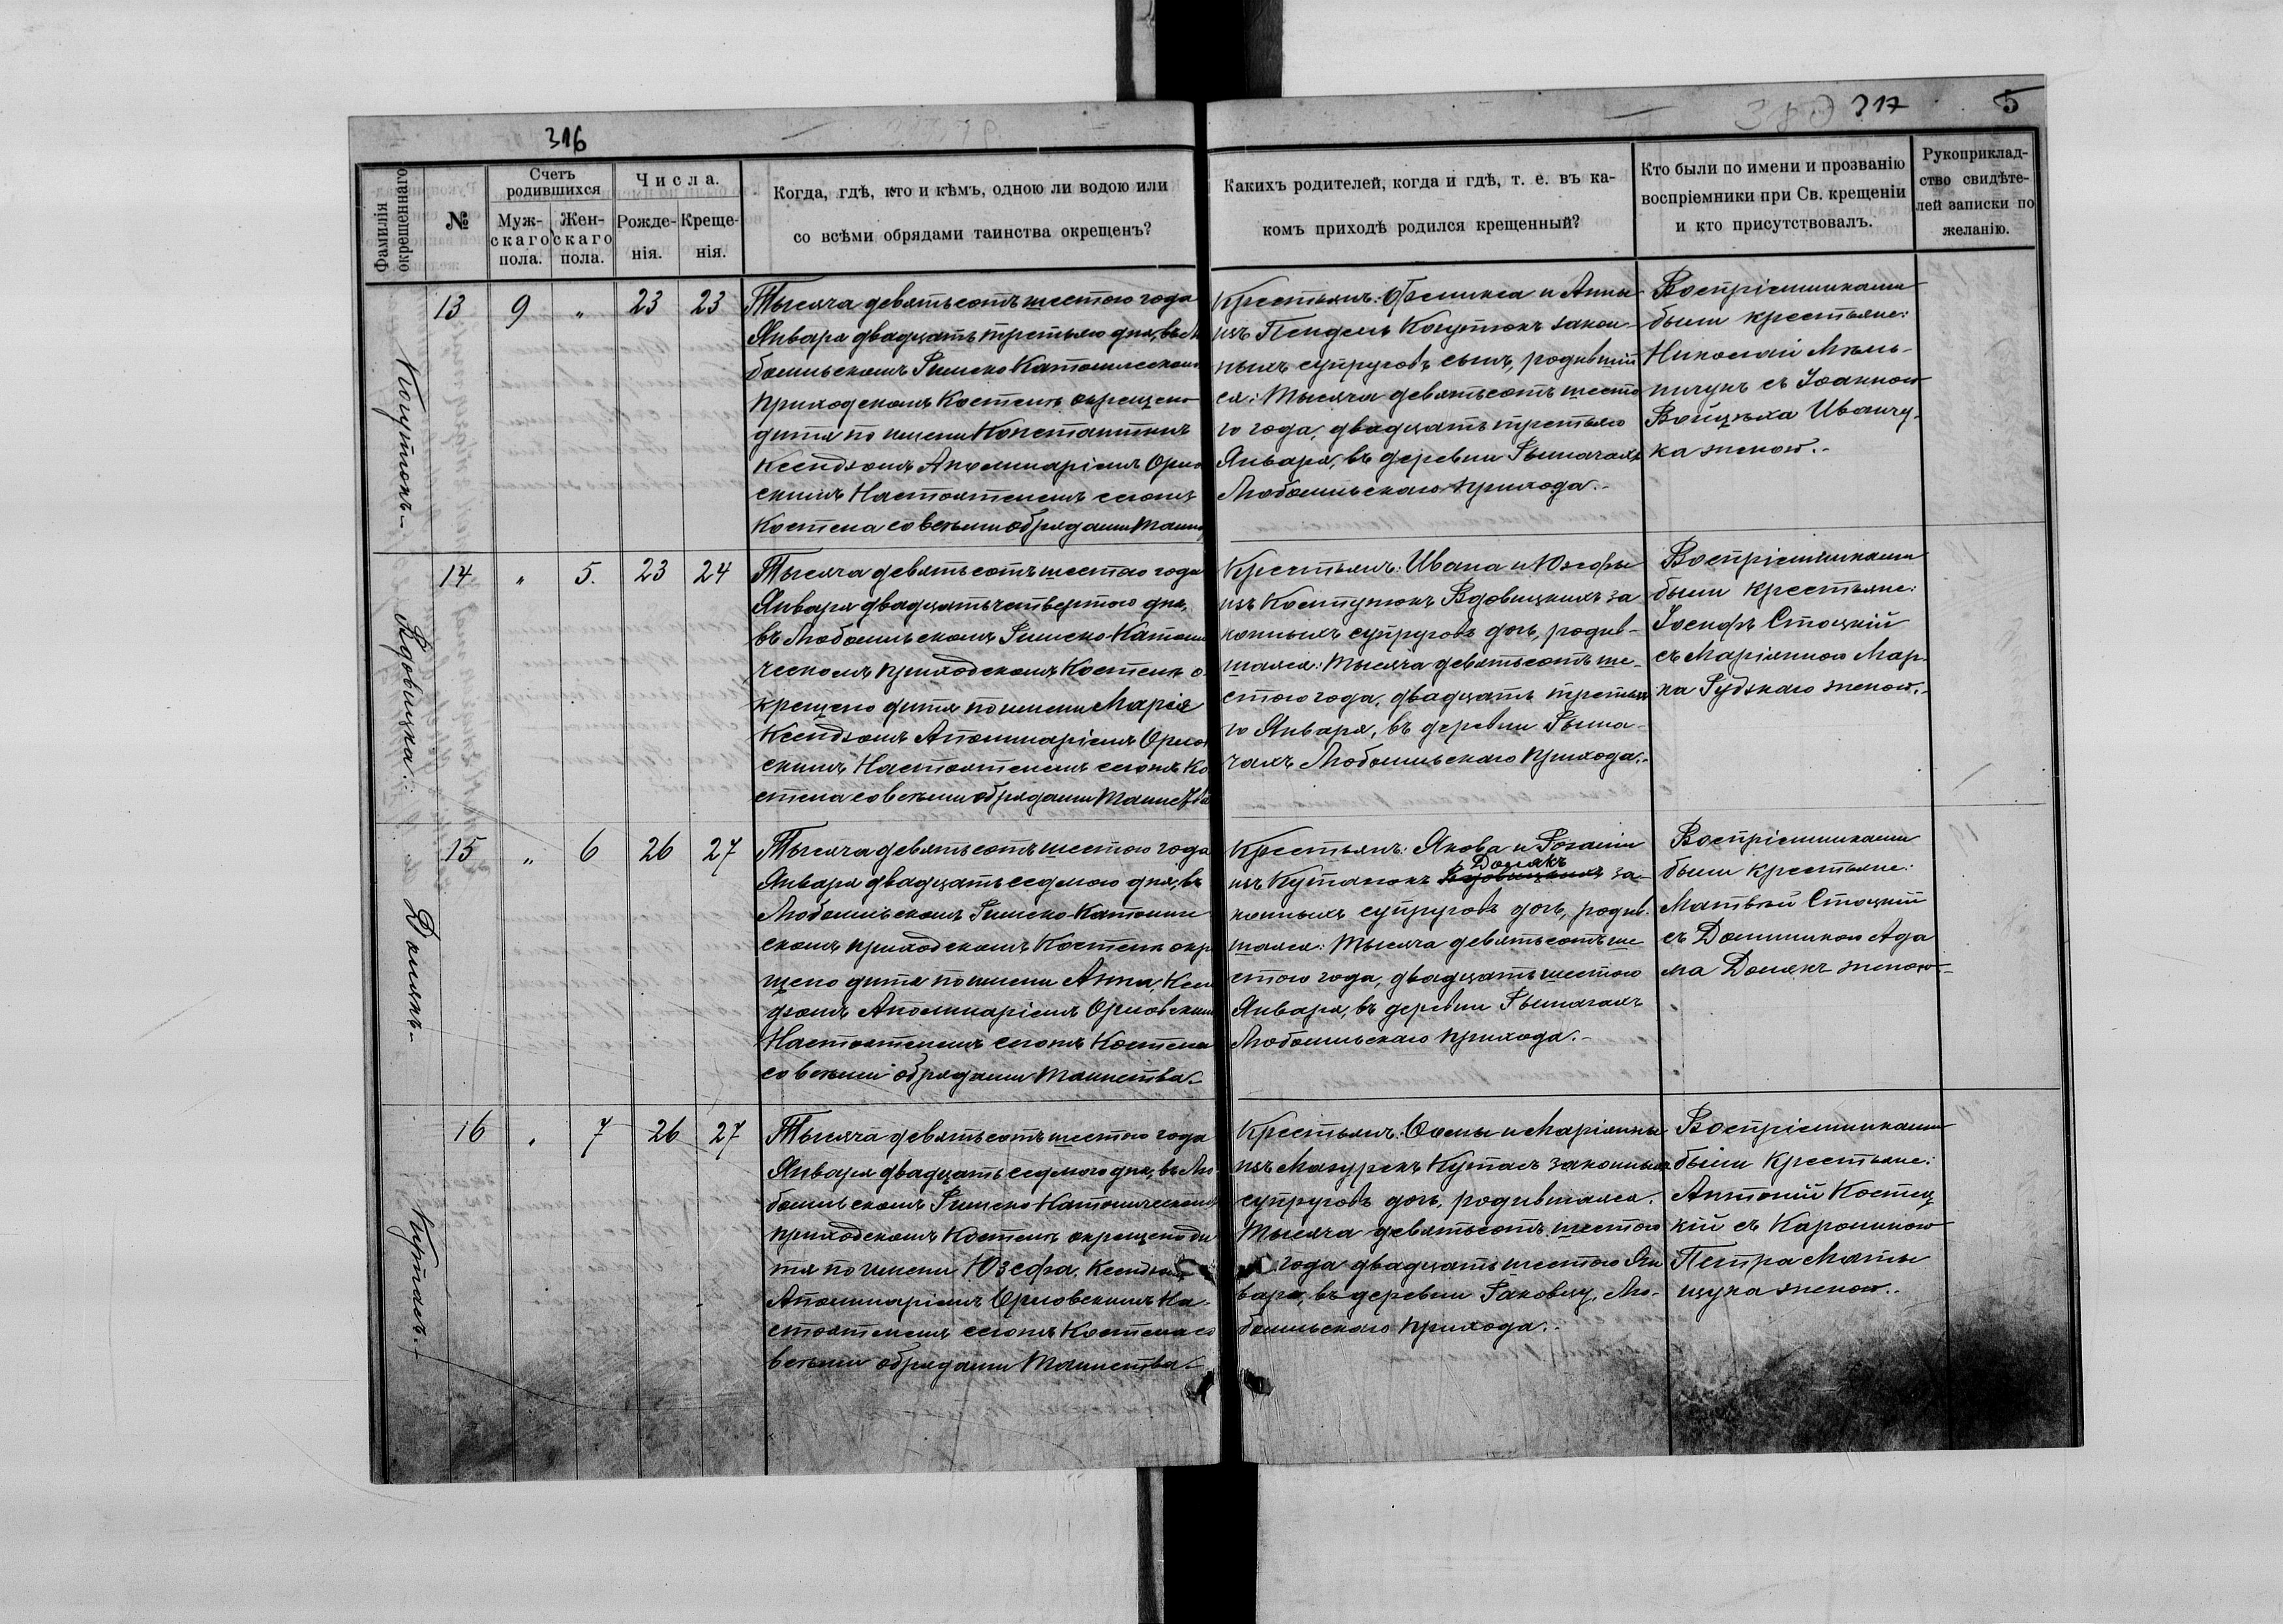 316
Фамилія окрещеннаго
№
Счетъ родившихся
Мужскаго пола.
Женскаго пола.
Числа.
Рожденія.
Крещенія.
Когда, гдѣ, кто и кѣмъ, одною ли водою или
со всѣми обрядами таинства окрещенъ?
317
5
Какихъ родителей, когда и гдѣ, т. е. въ ка-
комъ приходѣ родился крещенный?
Кто были по имени и прозванію
воспріемники при Св. крещеніи
и кто присутствовалъ.
Рукоприклад-
ство свидѣте-
лей записки по
желанію.
13 9 „ 23 23
Тысяча девятьсотъ шестого года
Января двадцать третьяго дня, въ Лю
бомльскомъ Римско Католическомъ
приходскомъ Костелѣ окрещено
дитя по имени Константинъ
Ксендзомъ Аполинаріемъ Орлов
скимъ Настоятелемъ сегожъ
Костела со всѣми обрядами Таин
Крестьянъ: Феликса и Анны
изъ Пендель Когутюкъ закон-
ныхъ супруговъ сынъ, родившій
ся: Тысяча девятьсотъ шесто
го года, двадцать третьяго
Января, въ деревни Рымачахъ
Любомльскаго прихода.-
Воспріемниками
были крестьяне:
Николай Мель-
ничукъ съ Іоанною
Войцѣха Иванчу-
ка женою.-
14 „ 5. 23 24
Вдовицка:
Тысяча девятьсотъ шестого года
Января двадцать четвертого дня,
въ Любомльскомъ Римско-Католи
ческомъ приходскомъ Костелѣ о-
крещено дитя по имени Марія
Ксендзомъ Аполинаріемъ Орлов
скимъ Настоятелемъ сегожъ Ко
стела со всѣми обрядами Таинства
Крестьянъ: Ивана и Юзефы
изъ Костутюкъ Вдовицкихъ за
конныхъ супруговъ дочь, родив-
шаяся: Тысяча девятьсотъ ше-
стого года, двадцать третья
го Января, въ деревни Рыма-
чахъ Любомльскаго прихода.-
Воспріемниками
были крестьяне:
Іосифъ Стоцкій
съ Маріянною Мар-
ка Рудзкаго женою.-
15 „ 6 26 27
Домякъ.-
Тысяча девятьсотъ шестого года
Января двадцать седмого дня, въ
Любомльскомъ Римско-Католиче
скомъ приходскомъ Костелѣ окре
щено дитя по имени Анна, Ксен
дзомъ Аполинаріемъ Орловскимъ
Настоятелемъ сегожъ Костела
со всѣми обрядами Таинства.-
Крестьянъ: Якова и Розаліи
Домякъ
изъ Кутанокъ Вдовицкихъ за-
конныхъ супруговъ дочь, родив-
шаяся: Тысяча девятьсотъ ше
стого года, двадцать шестого
Января, въ деревни Рымачахъ
Любомльскаго прихода.-
Воспріемниками
были крестьяне:
Матвѣй Стоцкій
съ Доминикою Ада
ма Домякъ женою.-
16 „ 7 26 27
Тысяча девятьсотъ шестого года
Января двадцать седмого дня, въ Лю-
бомльскомъ Римско Католическомъ
приходскомъ Костелѣ окрещено ди
тя по имени Юзефа, Ксендзомъ
Аполинаріемъ Орловскимъ На-
стоятелемъ сегожъ Костела со
всѣми обрядами Таинства.-
Крестьянъ: Ѳомы и Маріянны
изъ Мазурекъ Куталъ законныхъ
супруговъ дочь, родившаяся:
Тысяча девятьсотъ шестого
года двадцать шестого Ян
варя, въ деревни Раковцу, Лю-
бомльскаго прихода.-
Воспріемниками
были крестьяне:
Антоній Костец
кій съ Каролиною
Петра Маты
щука женою.-